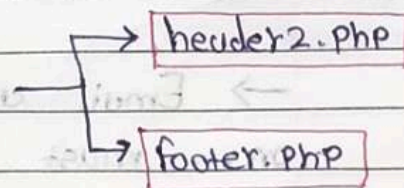 header2.php
footer.php